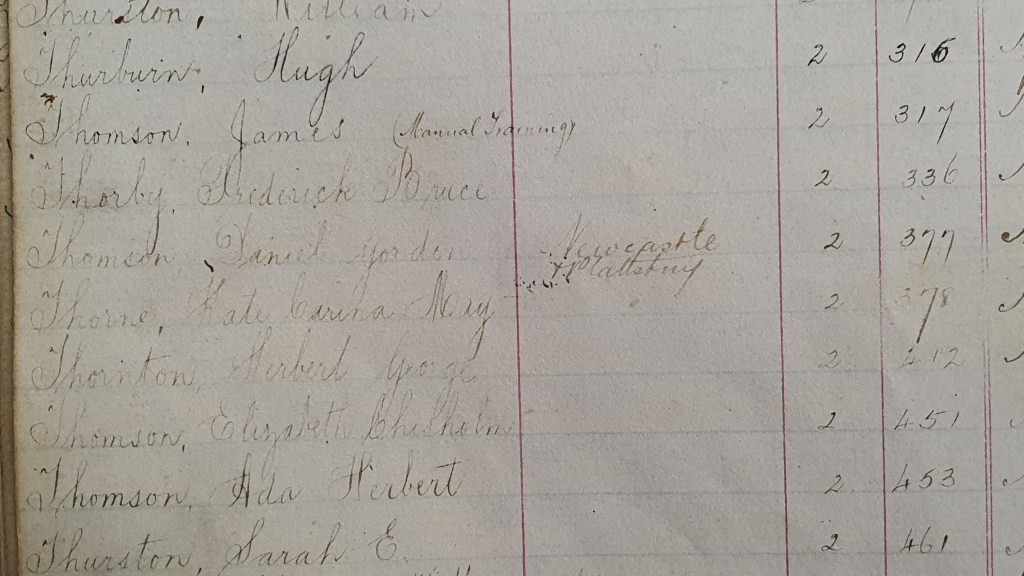 Thurston, William
Thurburn, Hugh 2 316
Thomson, James (Manual Training) 2 317
Thorby, Frederick Bruce 2 336
Thomson Daniel Gordon Newcastle 2 377
Plattsburg
Thorne, Kate Carina May 2 378
Thornton, Herbert George 2 412
Thomson, Elizabeth Chisholm 2 451
Thomson, Ada Herbert 2 453
Thurston, Sarah E. 2 461